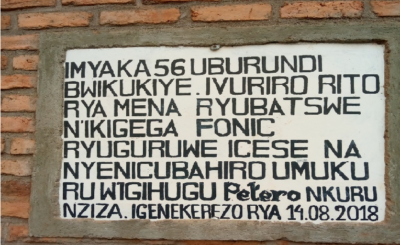 IMYAKA 56 UBURUNDI
BWIKUKIYE. IVURIRO RITO
RYA MENA RYUBATSWE
N'IKIGEGA FONIC
RYUGURUWE ICESE NA
NYENICUBAHIRO UMUKU
RU W'IGIHUGU Petero NKURU
NZIZA. IGENEKEREZO RYA 14.08.2018